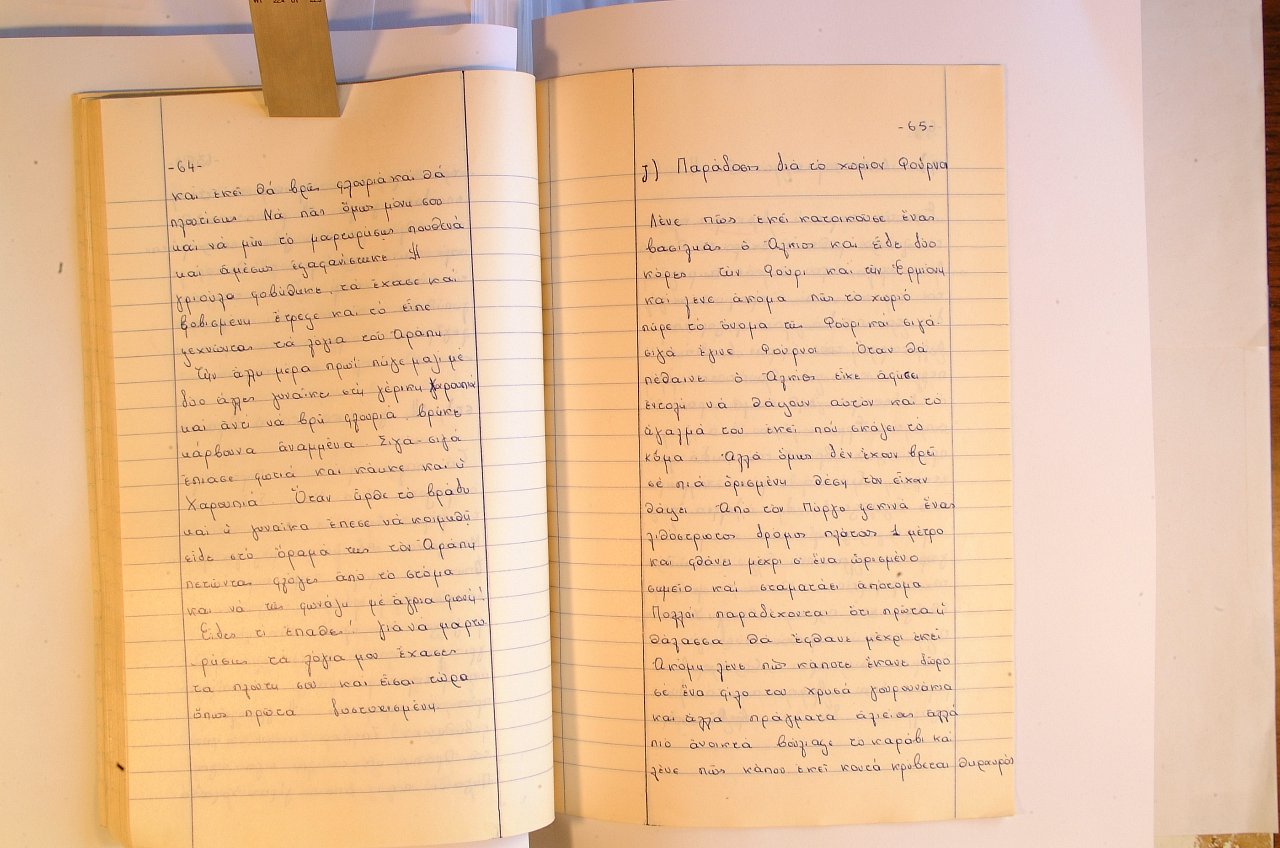 -64-
καὶ ἐκεῖ θά βρῇς φλουριά καί θά
πλουτίσῃς Νά πᾶς ὅμως μόνη σου
καὶ νά μήν τό μαρτυρήσῃς πουθενά
καὶ ἀμέσως ἐξαφανίστηκε Ἡ
γριούλα φοβήθηκε, τά ἔχασε καὶ
φοβισμένη ἔτρεξε καὶ τό εἶπε
ξεχνώντας τά λόγια τοῦ Ἀράπη.
Τήν ἄλλη μέρα πρωΐ πῆγε μαζί μέ
δύο ἄλλες γυναῖκες στή γέρικη Χαρουπιά
καὶ ἀντί νά βρῇ φλουριά βρῆκε
κάρβουνα ἀναμμένα. Σιγά-σιγά
ἔπιασε φωτιά καὶ κάηκε καὶ ἡ
Χαρουπιά Ὅταν ἦρθε τό βράδυ
καὶ ἡ γυναίκα ἔπεσε νά κοιμηθῇ
εἶδε στό ὅραμά της τόν Ἀράπη
πετώντας φλόγες ἀπό τό στόμα
καὶ νά τῆς φωνάζη μέ ἄγρια φωνή!
Εἶδες τί ἔπαθες! γιά νά μαρτυ
ρήσῃς τά λόγια μου ἔχασες
τά πλούτη σου καὶ εἶσαι τώρα
ὅπως πρῶτα δυστυχισμένη
-65-
γ) Παράδοσις διά τό χωρίον Φούρνοι
Λένε πῶς ἐκεῖ κατοικοῦσε ἕνας
βασιλιάς ὁ Ἄλκιος καὶ εἶδε δύο
κόρες τήν Φούρι καὶ τήν Ἑρμιόνη
καὶ λένε ἀκόμα πῶς τό χωριό
πῆρε τό ὄνομα τῆς Φούρι καὶ σιγά-
σιγά ἔγινε Φούρνοι Ὅταν θά
πέθαινε ὁ Ἄλκιος εἶχε ἀφήσει
ἐντολή νά θάψουν αὐτόν καὶ τό
ἄγαλμά του ἐκεῖ πού σκάζει τό
κῦμα. Ἀλλά ὅμως δέν ἔχουν βρεῖ
σέ ποιά ὁρισμένη θέση τόν εἶχαν
θάψει Ἀπό τόν Πύργο ξεκινᾶ ἕνας
λιθόστρωτος δρόμος πλάτους 1 μέτρο
καὶ φθάνει μέχρι σ' ἕνα ὡρισμένο
σημεῖο καὶ σταματάει ἀπότομα
Πολλοί παραδέχονται ὅτι πρῶτα ἡ
θάλασσα θά ἔφθανε μέχρι ἐκεῖ
Ἀκόμη λένε πῶς κάποτε ἔκανε δῶρο
σέ ἕνα φίλο του χρυσά γουρουνάκια
καὶ ἄλλα πράγματα ἀξίας ἀλλά
πιό ἀνοικτά βούλιαξε τό καράβι καὶ
λένε πῶς κάπου ἐκεῖ κοντά κρύβεται θησαυρός